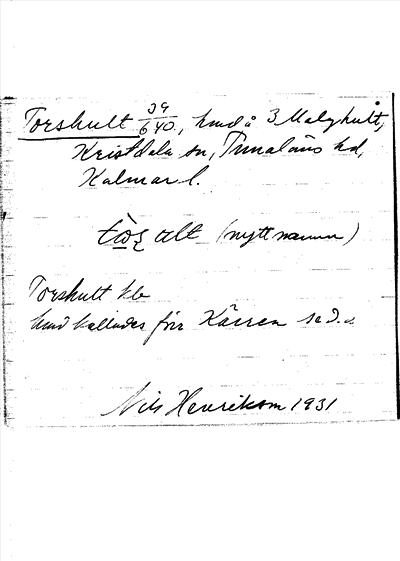 Torshult 39/640, hmd å 3 Malghult,
Kristdala sn, Tunaläns hd,
Kalmar l.
(nytt namn)
Torshult kb
hmd kallades förr Kärren se d. o
Nils Henrikson 1931